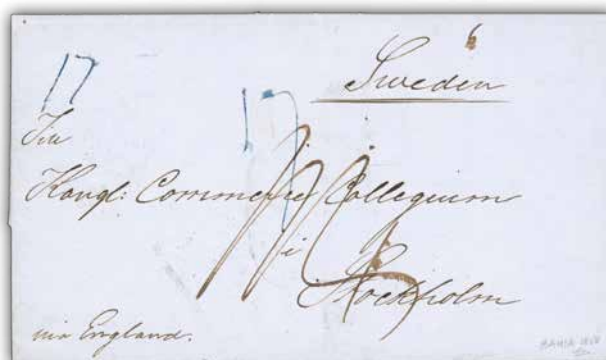 Sweden
17 17
Till
Kongl: Commerce Collegium
i
Stockholm
via England.
BAHIA